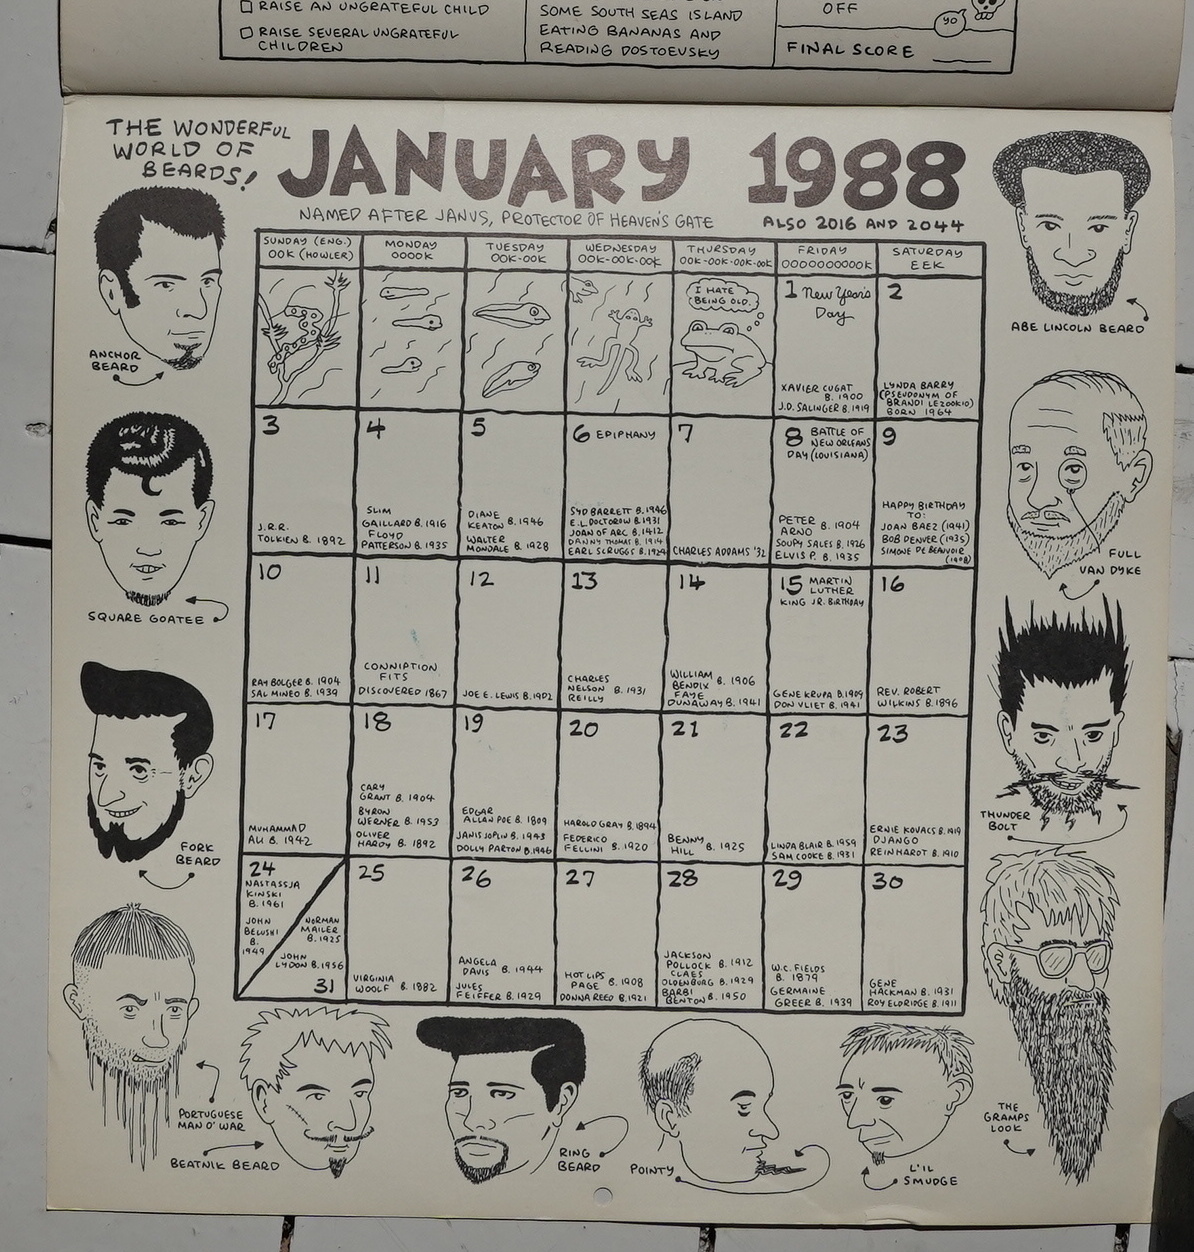 □ RAISE AN UNGRATEFUL CHILD
□ RAISE SEVERAL UNGRATEFUL
CHILDREN
SOME SOUTH SEAS ISLAND
EATING BANANAS AND
READING DOSTOEVSKY
OFF
YO
FINAL SCORE
THE WONDERFUL
WORLD OF
BEARDS!
JANUARY 1988
NAMED AFTER JANUS, PROTECTOR OF HEAVEN'S GATE
ALSO 2016 AND 2044
SUNDAY (ENG.)
OOK (HOWLER)
MONDAY
OOOOK
TUESDAY
OOK-OOK
WEDNESDAY
OOK-OOK-OOK
THURSDAY
OOK-OOK-OOK-OOK
FRIDAY
OOOOOOOOOOK
SATURDAY
EEK
I HATE
BEING OLD.
1 New Year's
Day
XAVIER CUGAT
B. 1900
J.D. SALINGER B. 1919
2
LYNDA BARRY
(PSEUDONYM OF
BRANDI LEZOOKIO)
BORN 1964
3
J.R.R.
TOLKIEN B. 1892
4
SLIM
GAILLARD B. 1916
FLOYD
PATTERSON B. 1935
5
DIANE
KEATON B. 1946
WALTER
MONDALE B. 1928
6 EPIPHANY
SYD BARRETT B. 1946
E.L. DOCTOROW B. 1931
JOAN OF ARC B. 1412
DANNY THOMAS B. 1914
EARL SCRUGGS B. 1924
7
CHARLES ADDAMS '32
8 BATTLE OF
NEW ORLEANS
DAY (LOUISIANA)
PETER
ARNO B. 1904
SOUPY SALES B. 1926
ELVIS P. B. 1935
9
HAPPY BIRTHDAY
TO:
JOAN BAEZ (1941)
BOB DENVER (1935)
SIMONE DE BEAUVOIR
(1908)
10
RAY BOLGER B. 1904
SAL MINEO B. 1939
11
CONNIPTION
FITS
DISCOVERED 1867
12
JOE E. LEWIS B. 1902
13
CHARLES
NELSON B. 1931
REILLY
14
WILLIAM
BENDIX B. 1906
FAYE
DUNAWAY B. 1941
15 MARTIN
LUTHER
KING JR. BIRTHDAY
GENE KRUPA B. 1909
DON VLIET B. 1941
16
REV. ROBERT
WILKINS B. 1896
17
MUHAMMAD
ALI B. 1942
18
CARY
GRANT B. 1904
BYRON
WERNER B. 1953
OLIVER
HARDY B. 1892
19
EDGAR
ALLAN POE B. 1809
JANIS JOPLIN B. 1943
DOLLY PARTON B. 1946
20
HAROLD GRAY B. 1894
FEDERICO
FELLINI B. 1920
21
BENNY
HILL B. 1925
22
LINDA BLAIR B. 1959
SAM COOKE B. 1931
23
ERNIE KOVACS B. 1919
DJANGO
REINHARDT B. 1910
24
NASTASSJA
KINSKI
B. 1961
JOHN
BELUSHI
B.
1949
NORMAN
MAILER
B. 1925
JOHN
LYDON B. 1956
31
25
VIRGINIA
WOOLF B. 1882
26
ANGELA
DAVIS B. 1944
JULES
FEIFFER B. 1929
27
HOT LIPS
PAGE B. 1908
DONNA REED B. 1921
28
JACKSON
POLLOCK B. 1912
CLAES
OLDENBURG B. 1929
BARBI
BENTON B. 1950
29
W.C. FIELDS
B. 1879
GERMAINE
GREER B. 1939
30
GENE
HACKMAN B. 1931
ROY ELDRIDGE B. 1911
ANCHOR
BEARD
SQUARE GOATEE
FORK
BEARD
PORTUGUESE
MAN O' WAR
BEATNIK BEARD
RING
BEARD
POINTY
L'IL
SMUDGE
THE
GRAMPS
LOOK
THUNDER
BOLT
FULL
VAN DYKE
ABE LINCOLN BEARD